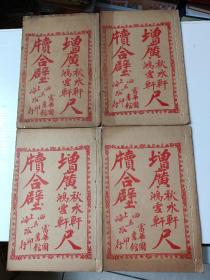 增廣
秋水軒
鴻雪軒
尺
牘合璧
上海
增廣
秋水軒
鴻雪軒
尺
牘合璧
上海
增廣
秋水軒
鴻雪軒
尺
牘合璧
上海
增廣
秋水軒
鴻雪軒
尺
牘合璧
上海